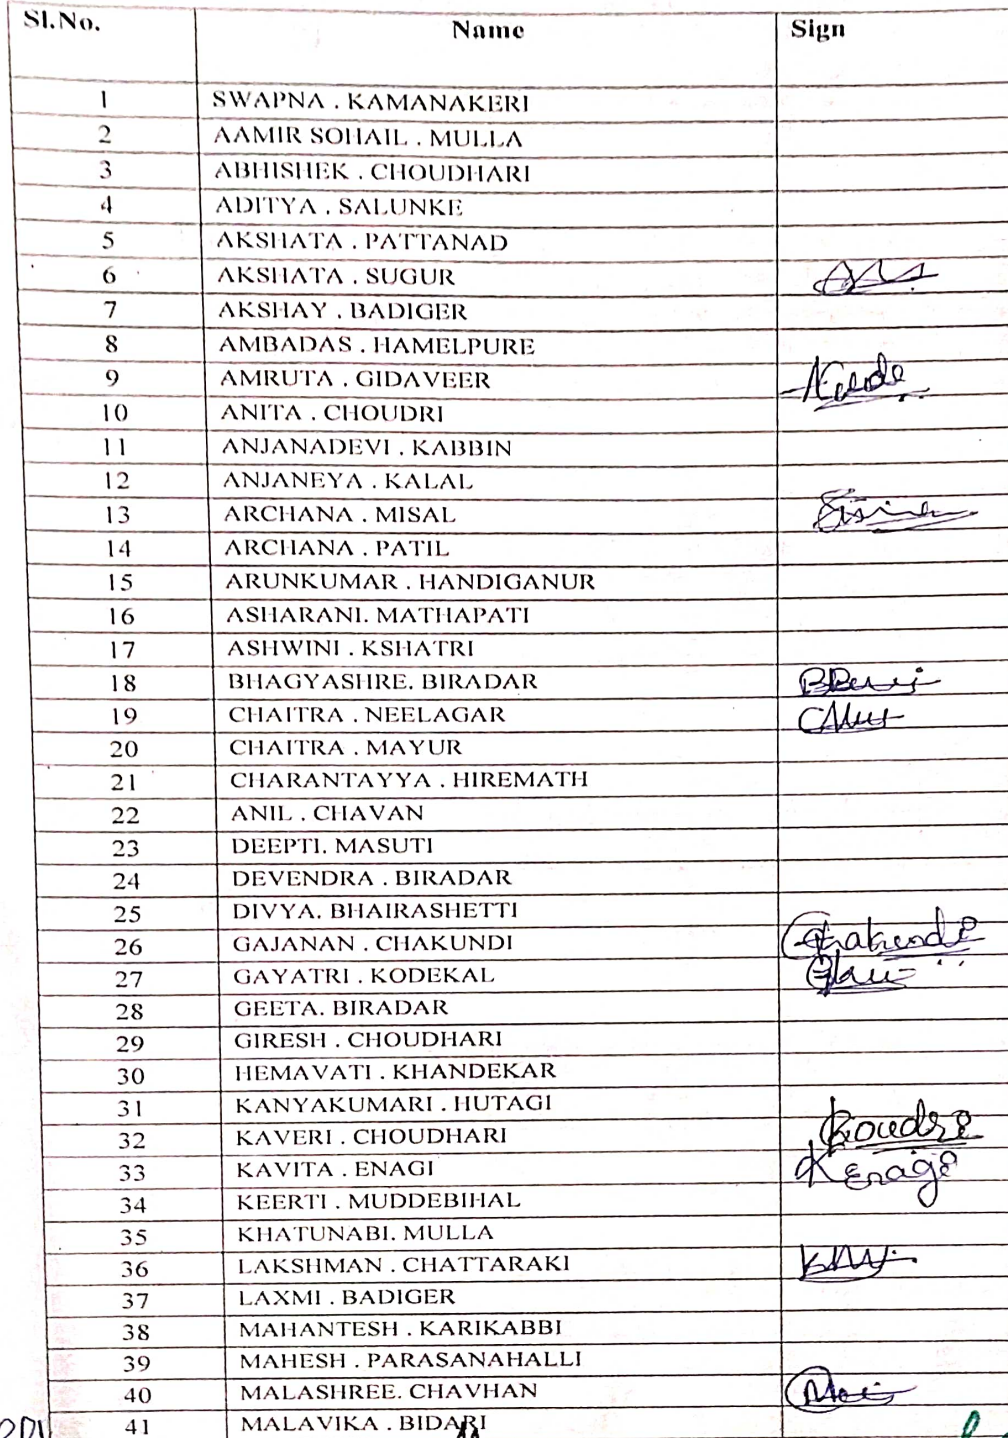 Sl.No. Name Sign
1 SWAPNA . KAMANAKERI
2 AAMIR SOHAIL . MULLA
3 ABHISHEK . CHOUDHARI
4 ADITYA . SALUNKE
5 AKSHATA . PATTANAD
6 AKSHATA . SUGUR
7 AKSHAY . BADIGER
8 AMBADAS . HAMELPURE
9 AMRUTA . GIDAVEER
10 ANITA . CHOUDRI
11 ANJANADEVI . KABBIN
12 ANJANEYA . KALAL
13 ARCHANA . MISAL
14 ARCHANA . PATIL
15 ARUNKUMAR . HANDIGANUR
16 ASHARANI. MATHAPATI
17 ASHWINI . KSHATRI
18 BHAGYASHRE. BIRADAR
19 CHAITRA . NEELAGAR
20 CHAITRA . MAYUR
21 CHARANTAYYA . HIREMATH
22 ANIL . CHAVAN
23 DEEPTI. MASUTI
24 DEVENDRA . BIRADAR
25 DIVYA. BHAIRASHETTI
26 GAJANAN . CHAKUNDI
27 GAYATRI . KODEKAL
28 GEETA. BIRADAR
29 GIRESH . CHOUDHARI
30 HEMAVATI . KHANDEKAR
31 KANYAKUMARI . HUTAGI
32 KAVERI . CHOUDHARI
33 KAVITA . ENAGI K Enagi
34 KEERTI . MUDDEBIHAL
35 KHATUNABI. MULLA
36 LAKSHMAN . CHATTARAKI
37 LAXMI . BADIGER
38 MAHANTESH . KARIKABBI
39 MAHESH . PARASANAHALLI
40 MALASHREE. CHAVHAN
41 MALAVIKA . BIDARI